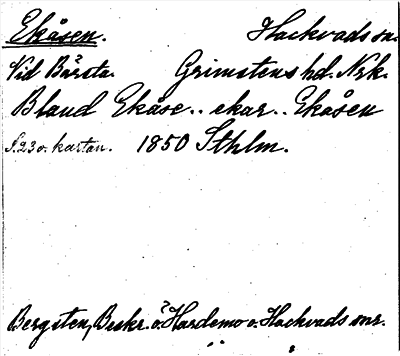 Ekåsen. Hackvads sn.
Vid Bårsta. Grimstens hd. Nrk.
Bland Ekåse.. ekar.. Ekåsen
S. 23 o. kartan. 1850 Sthlm.
Bergsten, Beskr. ö. Hardemo o. Hackvads snr.